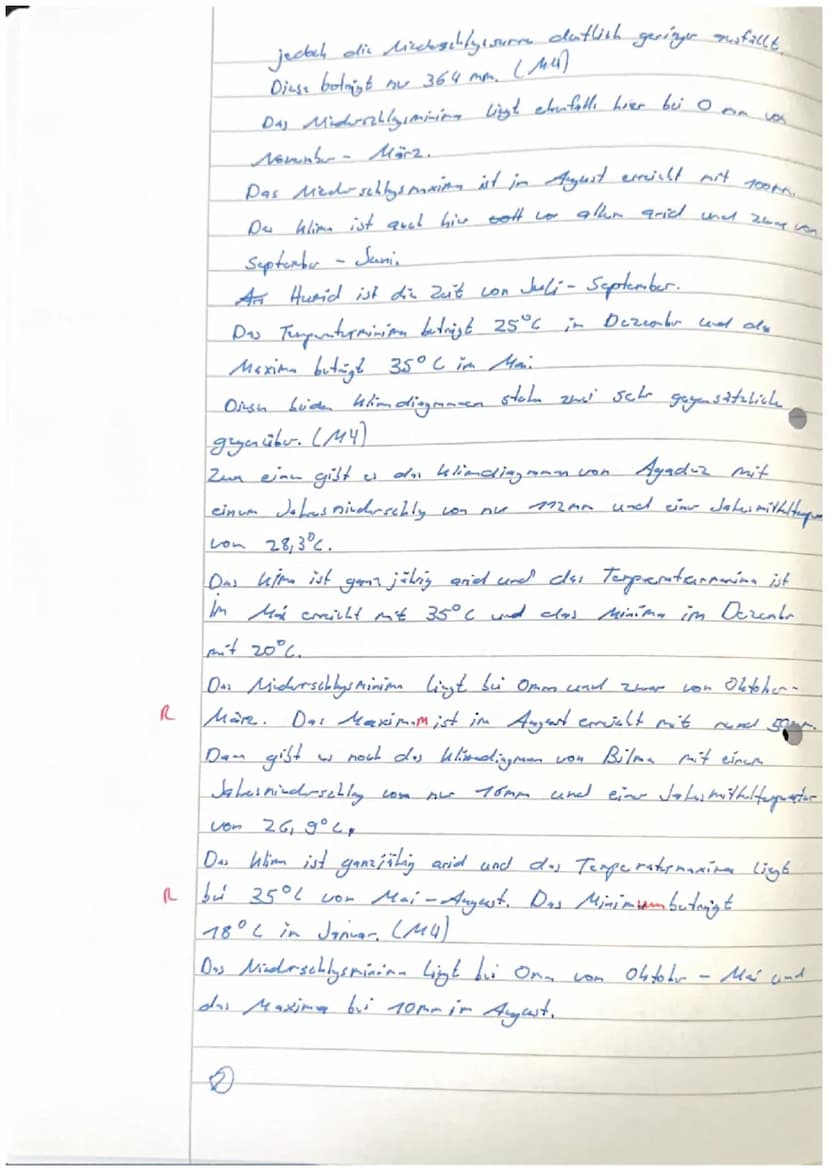 jedoch die Niederschlagssumme deutlich geringer ausfällt.
Diese beträgt nur 364 mm. (M4)
Das Niederschlagsminima liegt ebenfalls hier bei 0 mm von
November - März.
Das Niederschlagsmaxima ist im August erreicht mit 100mm.
Das Klima ist auch hier vor allem arid und zwar von
September - Juni.
Humid ist die Zeit von Juli - September.
Das Temperaturminima beträgt 25°C im Dezember und das
Maxima beträgt 35°C im Mai.
Diesen beiden Klimadiagrammen stehen zwei sehr gegensätzliche
gegenüber. (M4)
Zum einen gibt es das Klimadiagramm von Agadez mit
einem Jahresniederschlag von nur 112mm und einer Jahresmitteltemperatur
von 28,3°C.
Das Klima ist ganzjährig arid und das Temperaturmaxima ist
im Mai erreicht mit 35°C und das Minima im Dezember
mit 20°C.
Das Niederschlagsminima liegt bei 0mm und zwar von Oktober-
R März. Das Maximum ist im August erreicht mit rund 50mm.
Dann gibt es noch das Klimadiagramm von Bilma mit einem
Jahresniederschlag von nur 16mm und einer Jahresmitteltemperatur
von 26,9°C.
Das Klima ist ganzjährig arid und das Temperaturmaxima liegt
R bei 35°C von Mai - August. Das Minimum beträgt
18°C im Januar. (M4)
Das Niederschlagsminima liegt bei 0mm von Oktober - Mai und
das Maxima bei 10mm im August.
2